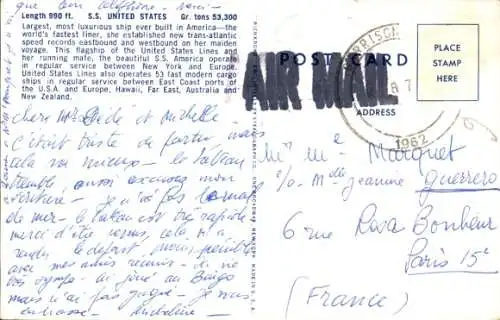 que bon
Length 990 ft. S.S. UNITED STATES Gr. tons 53,300
Largest, most luxurious ship ever built in America—the
world's fastest liner, she established new trans-atlantic
speed records eastbound and westbound on her maiden
voyage. This flagship of the United States Lines and
her running mate, the beautiful S.S. America operate
in regular service between New York and Europe.
United States Lines also operates 53 fast modern cargo
ships in regular service between East Coast ports of
the U.S.A. and Europe, Hawaii, Far East, Australia and
New Zealand.
chère et Michelle -
c'était triste de partir mais
cela va mieux - le bateau
tremble, aussi excusez mon
écriture - je n'ai pas le mal
de mer - le bateau est très rapide
merci d'être venus, cela m'a
rendu le départ moins pénible
avec mes amis réunis - la vie
. ai joué au Bingo
mais n'ai pas gagné - je vous
embrasse - Micheline -
POST CARD
AIR MAIL
ADDRESS
PLACE
STAMP
HERE
1962
Mr Me Marquet
c/o Mlle Jeanine Guerrero
6 rue Rosa Bonheur
Paris 15e
(France)
MADE IN U.S.A.